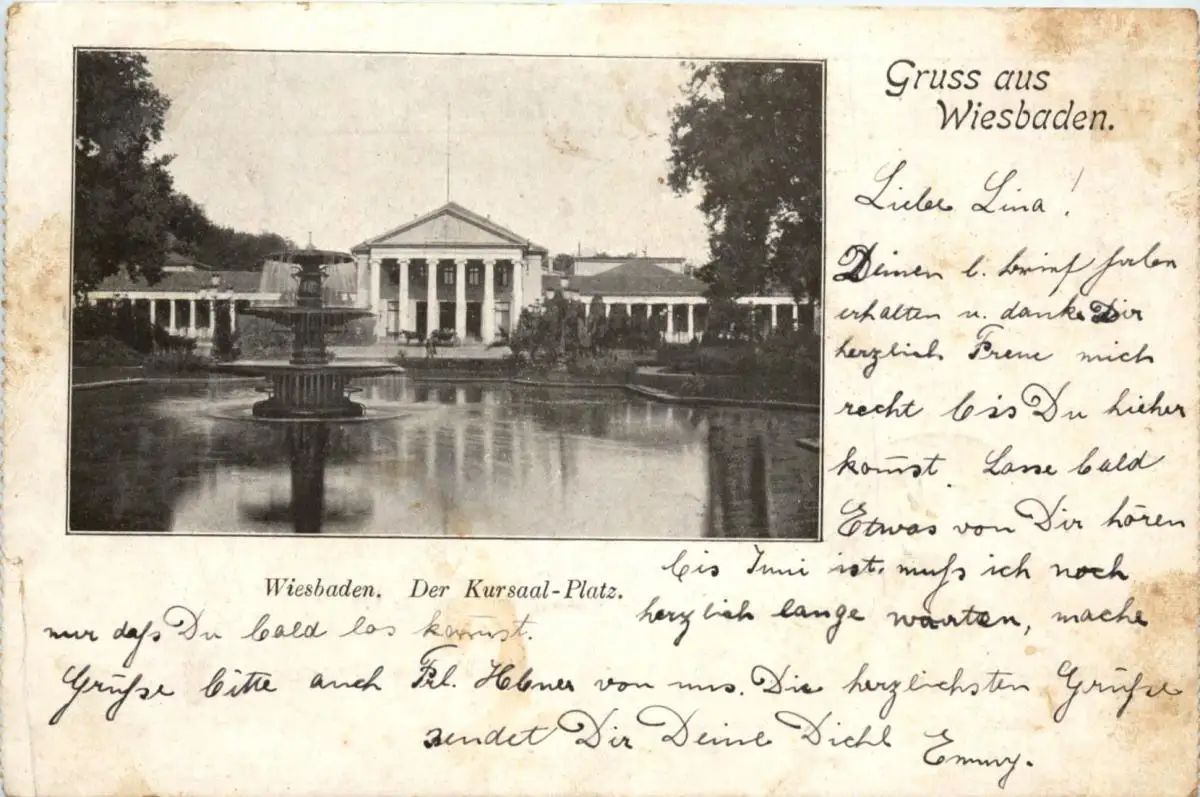 Gruss aus
Wiesbaden.
Lieber Lina!
Deinen l. brief haben
erhalten u. danke Dir
herzlich Freue mich
recht bis Du hieher
kom̄st. Lasse bald
Etwas von Dir hören
bis Juni ist. muß ich noch
herzlich lange waarten, mache
Wiesbaden. Der Kursaal-Platz.
nur daß Du bald los kom̄st.
Grüße bitte auch Frl. von uns. Die herzlichsten Grüße
sendet Dir Deine Dich
Emmy.